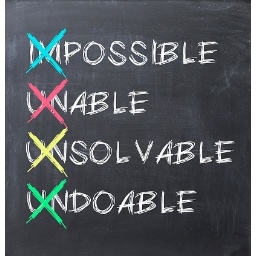 IMPOSSIBLE
UNABLE
UNSOLVABLE
UNDOABLE